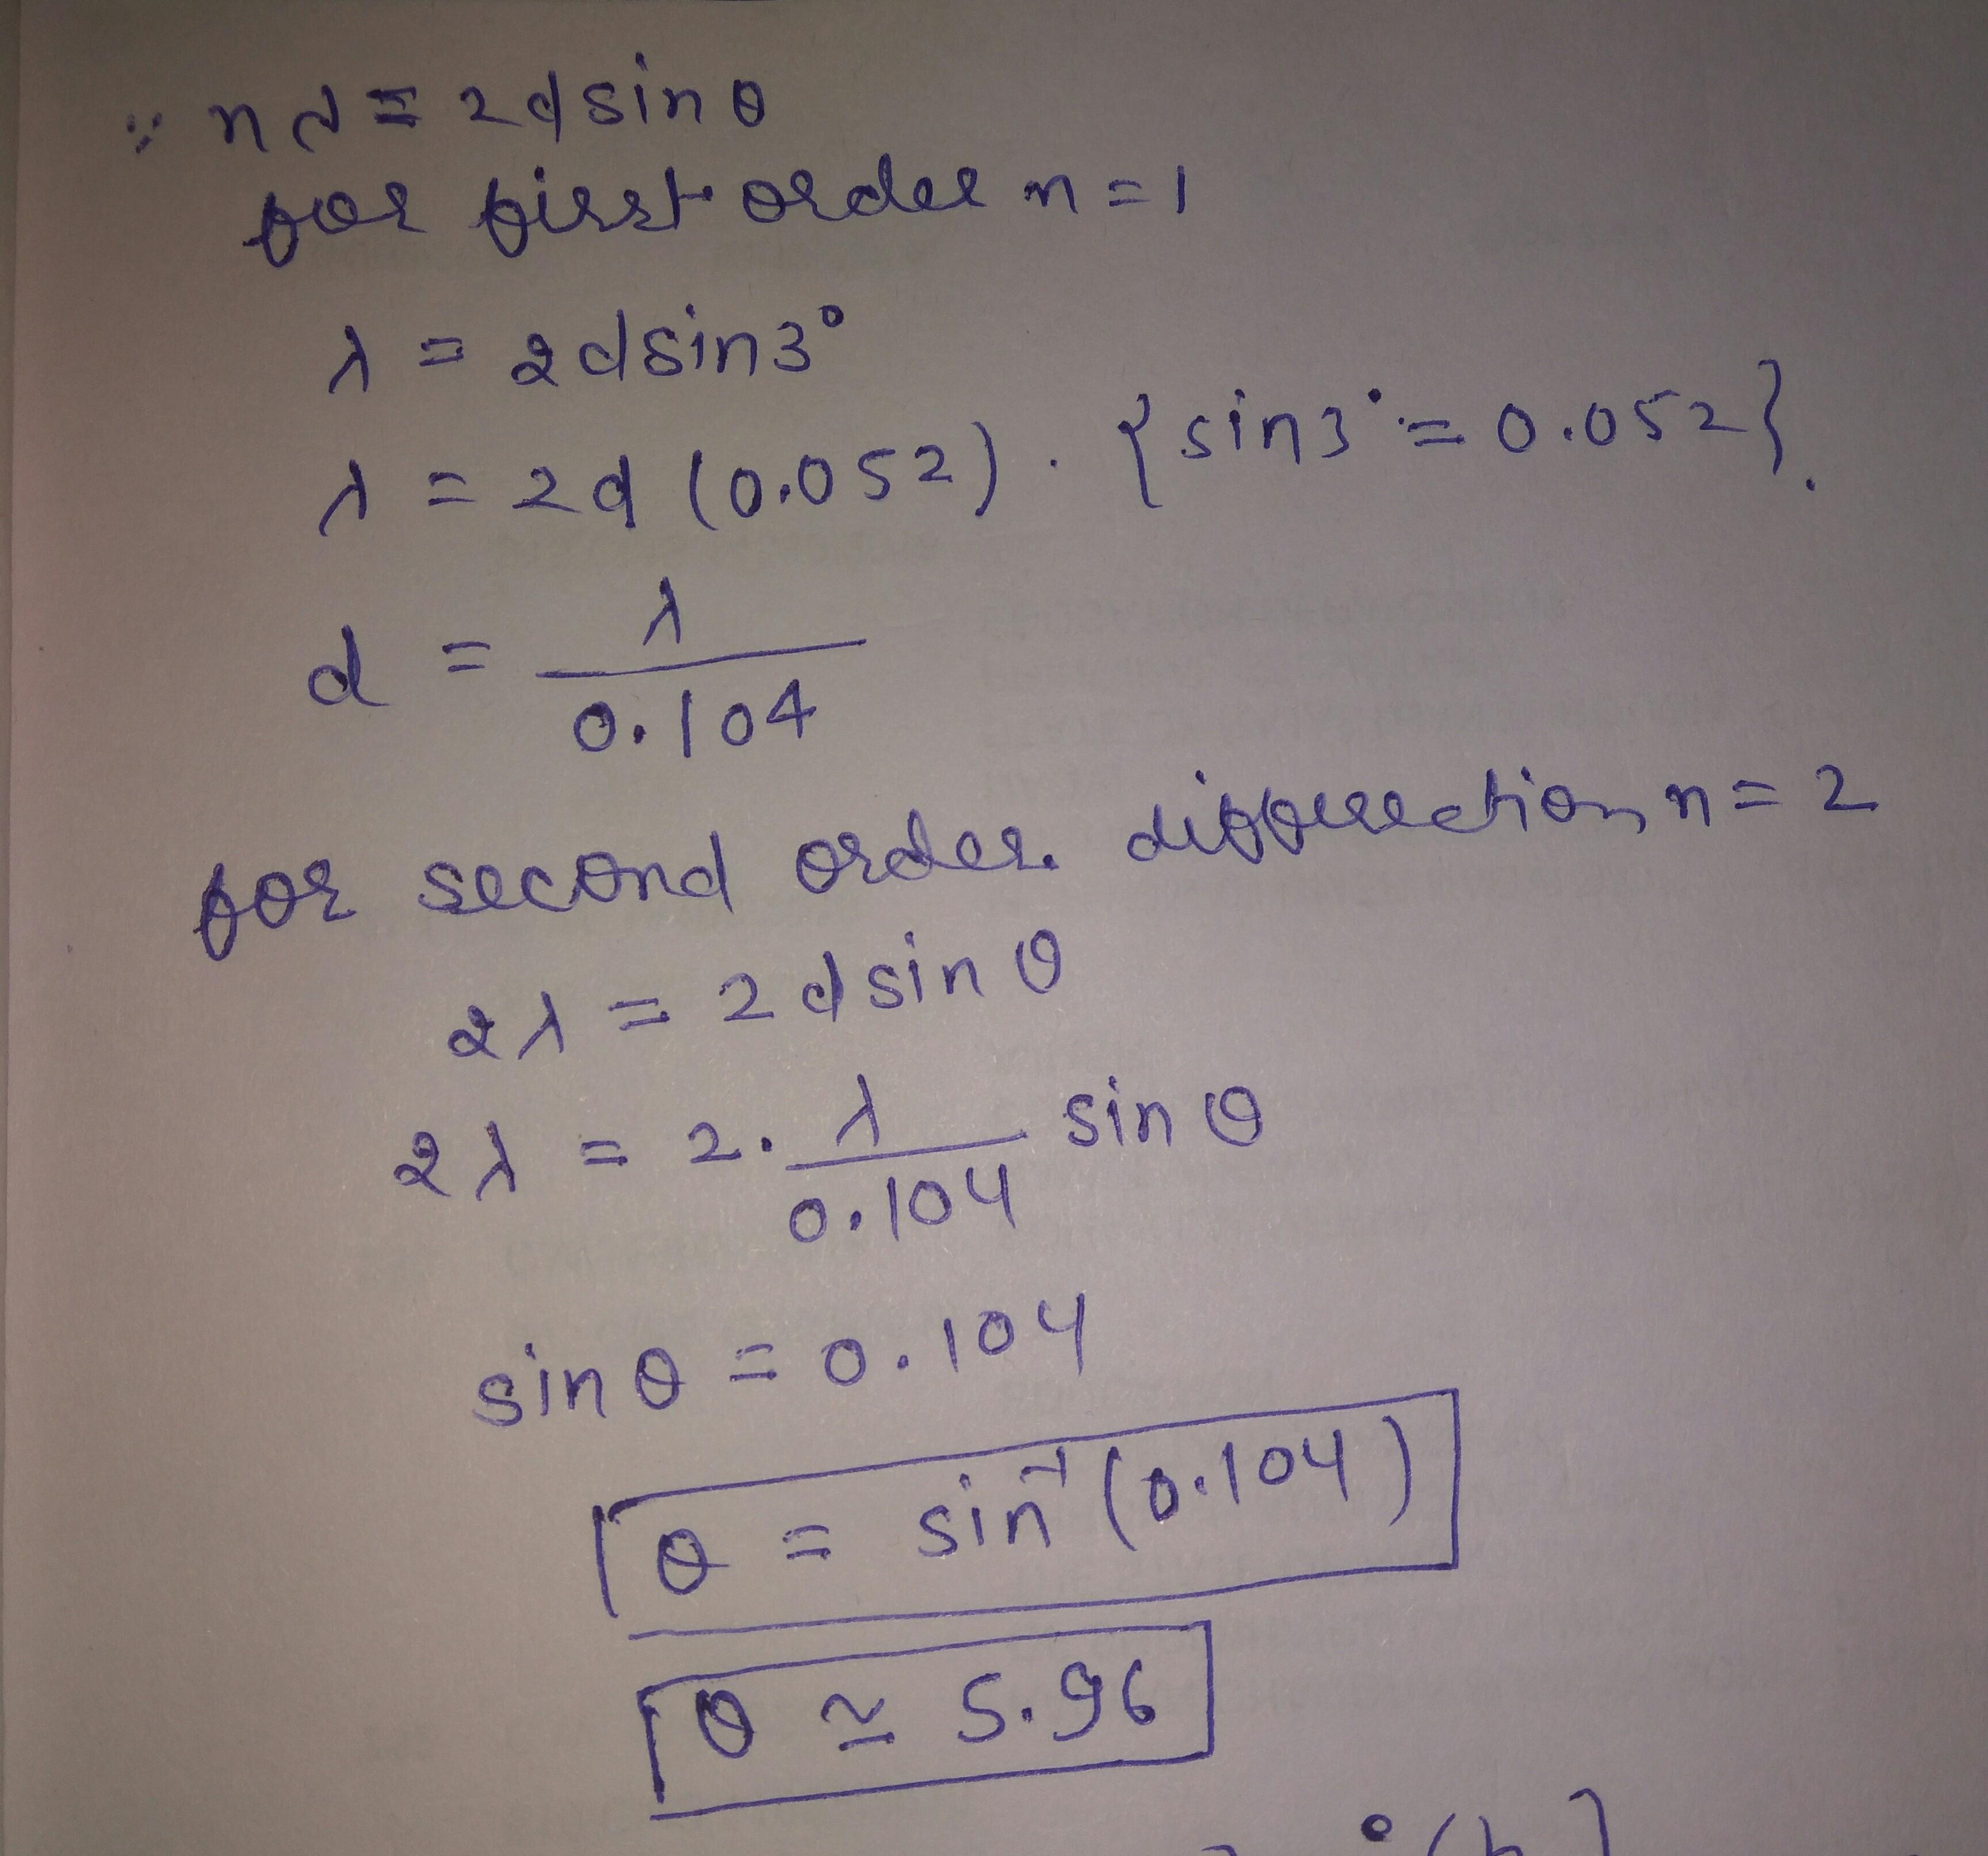 ∵ nλ = 2dsinθ
for first order n=1
λ = 2dsin3°
λ = 2d (0.052). {sin3° = 0.052}.
d = λ/0.104
for second order diffrection n=2
2λ = 2dsinθ
2λ = 2. λ/0.104 sinθ
sinθ = 0.104
θ = sin⁻¹(0.104)
θ ≃ 5.96